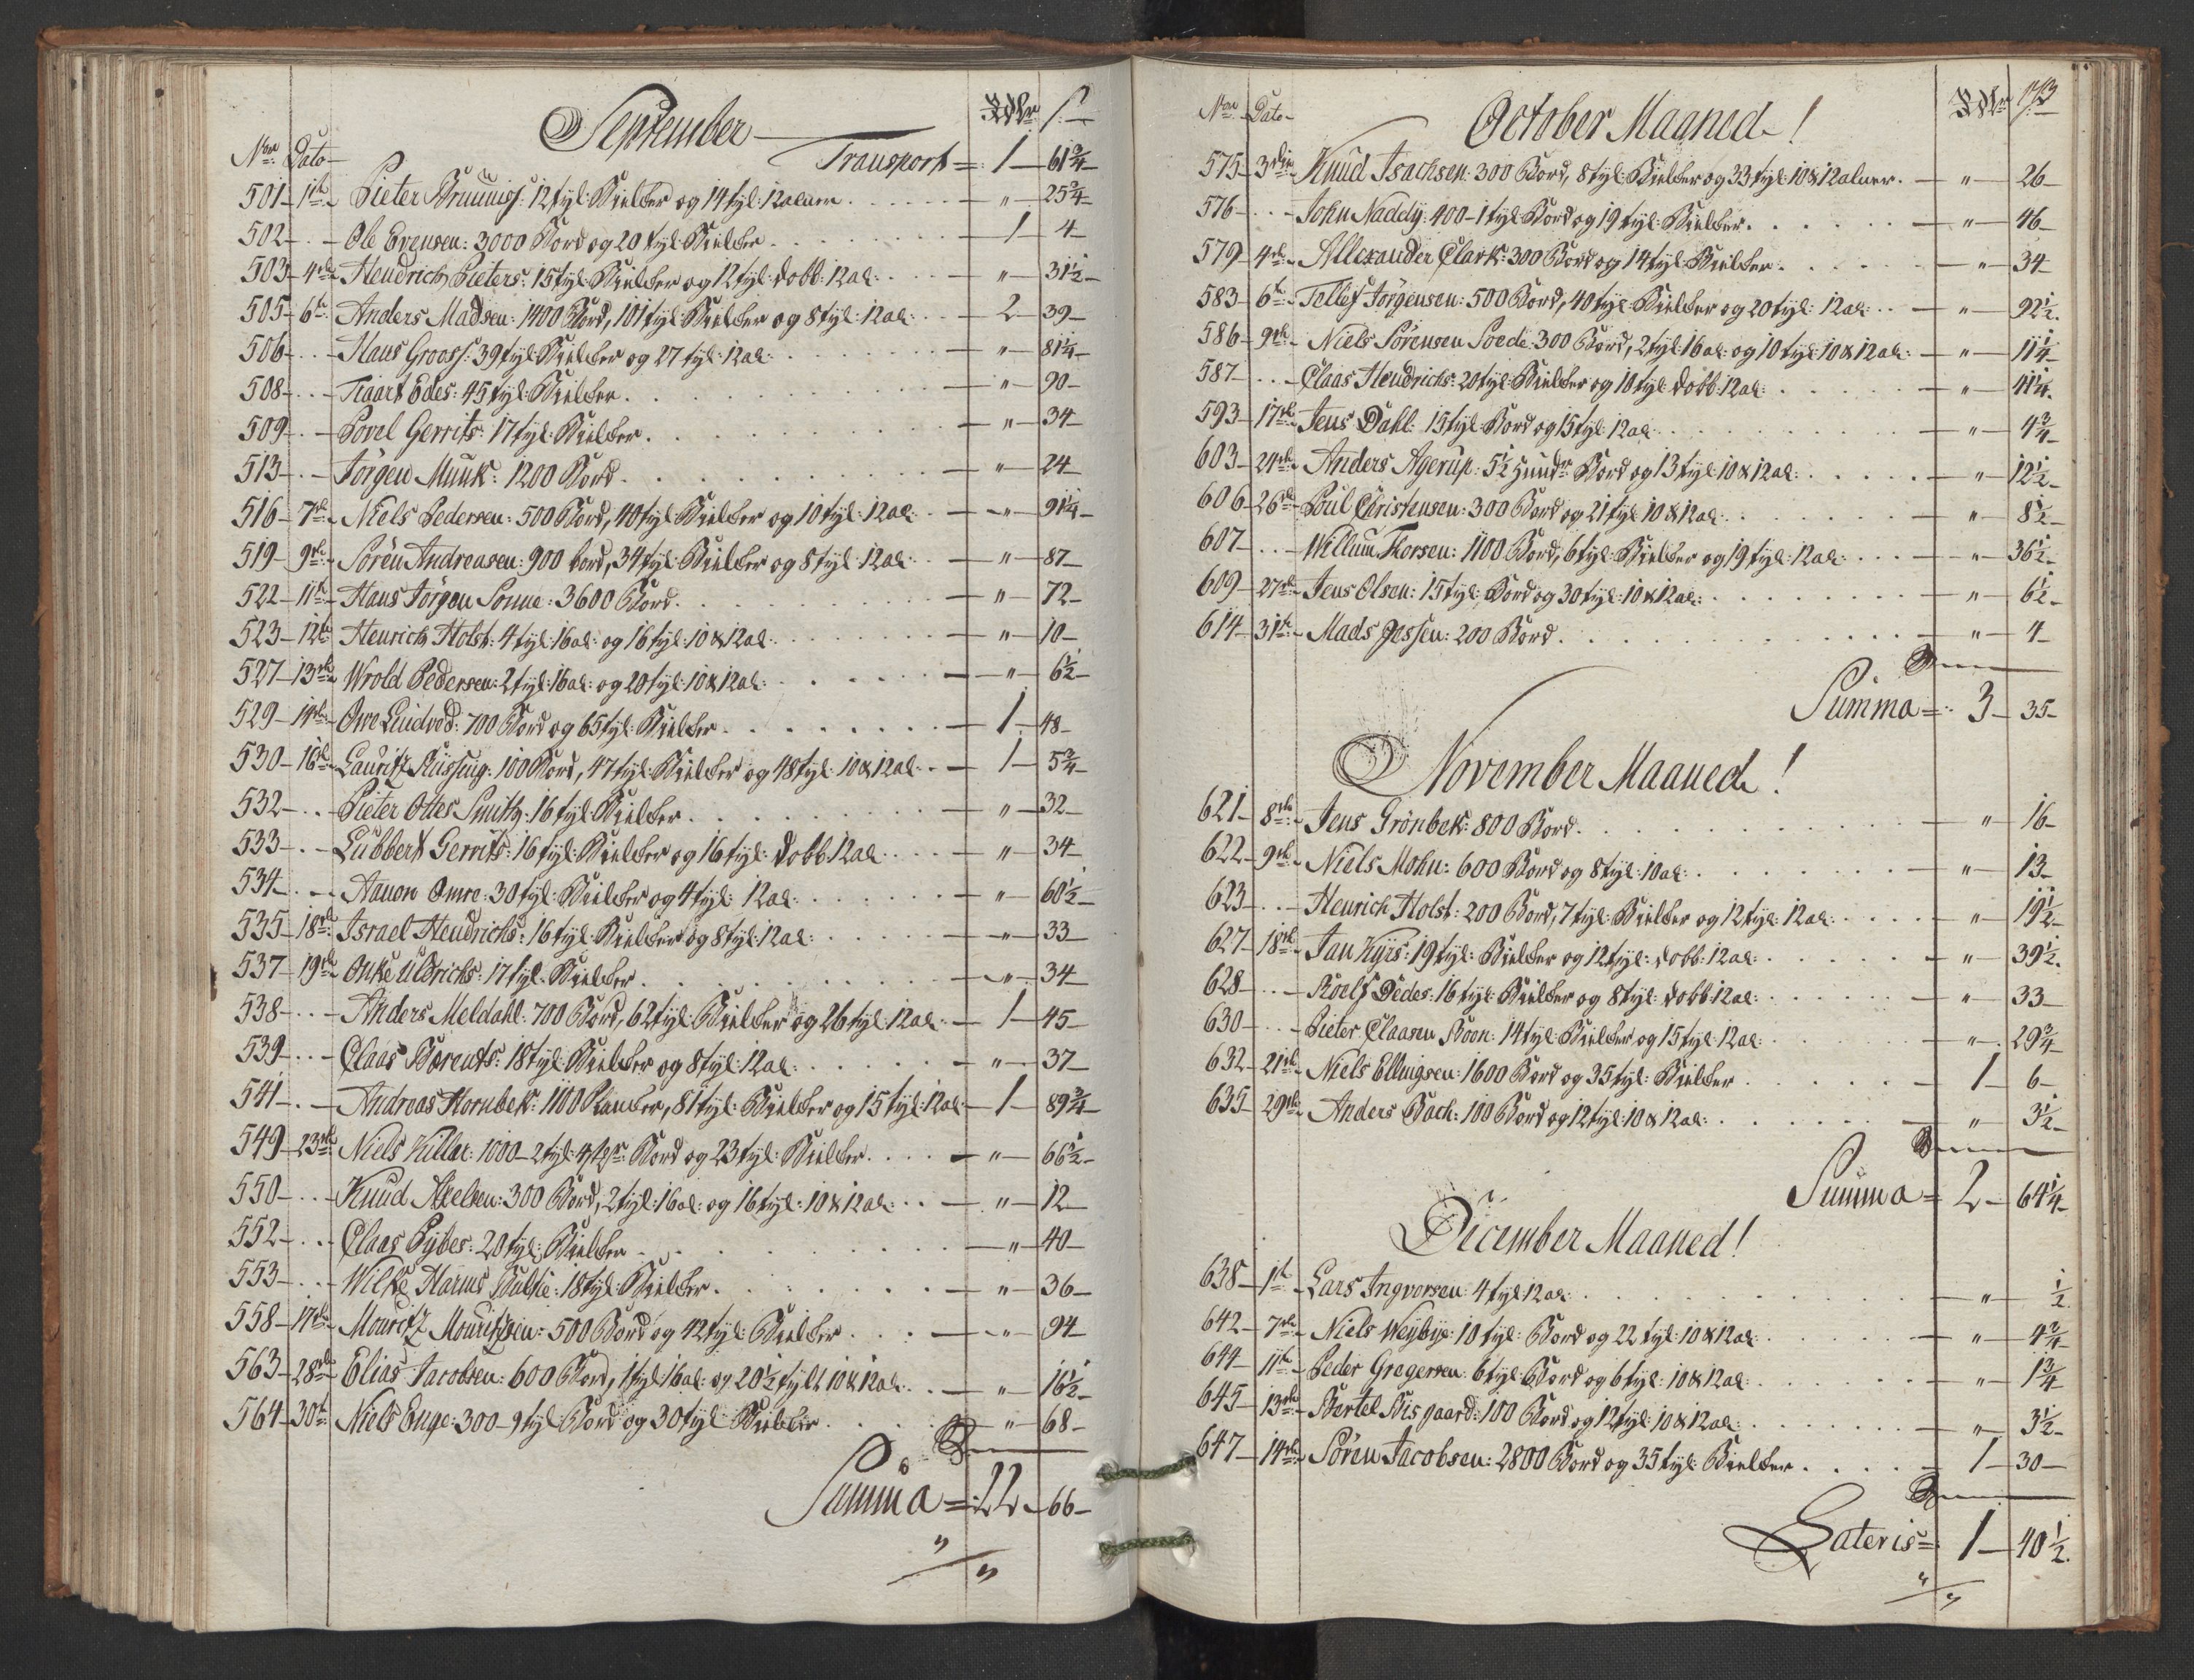 September
Rdlr ß
Nor: Dato
Transport = 1 61 3/4
501 1te Pieter Bruunis: 12 tyl: Bielker og 14 tyl: 12 aluen " 25 3/4
502 Ole Evensen: 3000 Bord og 20 tyl: Bielker 1 4
503 4de Hendrich Pieters: 15 tyl: Bielker og 12 tyl: dobb: 12 al: " 31 1/2
505 6te Anders Madsen: 1400 Bord, 101 tyl: Bielker og 8 tyl: 12 al: 2 39
506 Hans Grooss: 39 tyl: Bielker og 27 tyl: 12 al: " 81 1/4
508 Tiaart Edes: 45 tyl: Bielker " 90
509 Povel Gerrits: 17 tyl: Bielker " 34
513 Jörgen Munk: 1200 Bord " 24
516 7de Niels Pedersen: 500 Bord, 40 tyl: Bielker og 10 tyl: 12 al: " 91 1/4
519 9de Sören Andreasen: 900 bord, 34 tyl: Bielker og 8 tyl: 12 al: " 87
522 11te Hans Jörgen Sonne: 3600 Bord " 72
523 12te Henrich Holst: 4 tyl: 16 al: og 16 tyl: 10 & 12 al: " 10
527 13de Wrold Pedersen: 2 tyl: 16 al: og 20 tyl: 10 & 12 al: " 6 1/2
529 14de Owe Luidvod: 700 Bord og 65 tyl: Bielker 1 48
530 16de LauritzKüssing: 100 Bord, 47 tyl: Bielker og 48 tyl: 10 & 12 al: 1 5 3/4
532 Pieter Ottes Smith: 16 tyl: Bielker " 32
533 Lubbert Gerrits: 16 tyl: Bielker og 16 tyl: dobb: 12 al: " 34
534 Aanon Omre: 30 tyl: Bielker og 4 tyl: 12 al: " 60 1/2
535 18de Israel Hendrichs: 16 tyl: Bielker og 8 tyl: 12 al: " 33
537 19de Onke Uldrichs: 17 tyl: Bielker " 34
538 Anders Meldahl: 700 Bord, 62 tyl: Bielker og 26 tyl: 12 al: 1 45
539 Claas Barents: 18 tyl: Bielker og 8 tyl: 12 al: " 37
541 Andreas Hornbek: 1100 Planker, 81 tyl: Bielker og 15 tyl: 12 al: 1 89 3/4
549 23de Niels Hiller: 1000 - 2 tyl: Bord og 23 tyl: Bielker " 66 1/2
550 Knud Axelsen: 300 Bord, 2 tyl: 16 al: og 16 tyl: 10 & 12 al: " 12
552 Claas Pybes: 20 tyl: Bielker " 40
553 Wilke Harms Bulke: 18 tyl: Bielker " 36
558 Mouritz Mouritzsen: 500 Bord og 42 tyl: Bielker " 94
563 28de Elias Jacobsen: 600 Bord, 1 tyl: 16 al: og 20 1/2 tylt 10 & 12 al: " 16 1/2
564 30te Niels Enge: 300 - 9 tyl: Bord og 30 tyl: Bielker " 68
Summa = 22 66
Nor Dato
October Maaned!
Rdlr ß 113
575 3die Knud Isachsen: 300 Bord, 8 tyl: Bielker og 33 tyl: 10 & 12 aluer " 26
576 John Naddy: 400 - 1 tyl: Bord og 19 tyl: Bielker " 46
579 4de Allexander Clark: 300 Bord og 14 tyl: Bielker " 34
583 6te Tellef Jörgensen: 500 Bord, 40 tyl: Bielker og 20 tyl: 12 al: " 92 1/2
586 9de Niels Sörensen Soede: 300 Bord, 2 tyl: 16 al: og 10 tyl: 10 & 12 al: " 11 1/4
587 Claas Hendrichs: 20 tyl: Bielker og 10 tyl: dobb: 12 al: " 41 1/4
593 17de Jens Dahl: 15 tyl: Bord og 15 tyl: 12 al: " 4 3/4
603 24de Anders Agerup: 5 1/2 Hundr: Bord og 13 tyl: 10 & 12 al: " 12 1/2
606 26de Poul Christensen: 300 Bord og 21 tyl: 10 & 12 al: " 8 1/2
607 Willum Thorsen: 1100 Bord, 6 tyl: Bielker og 19 tyl: 12 al: " 36 1/2
609 27de Jens Olsen: 15 tyl: Bord og 30 tyl: 10 & 12 al: " 6 1/2
614 31te Mads Jessen: 200 Bord " 4
Summa = 3 35
November Maaned!
621 8de Jens Grönbek: 800 Bord " 16
622 9de Niels Mohn: 600 Bord og 8 tyl: 10 al: " 13
623 Henrich Holst: 200 Bord, 7 tyl: Bielker og 12 tyl: 12 al: " 19 1/2
627 18de Jan Kyrs: 19 tyl: Bielker og 12 tyl: dobb: 12 al: " 39 1/2
628 Roelf Dedes: 16 tyl: Bielker og 8 tyl: dobb: 12 al: " 33
630 Pieter Claasen Boon: 14 tyl: Bielker og 15 tyl: 12 al: " 29 3/4
632 21de Niels Ellingsen: 1600 Bord og 35 tyl: Bielker 1 6
635 29de Anders Bach: 100 Bord og 12 tyl: 10 & 12 al: " 3 1/2
Summa = 2 64 1/4
December Maaned!
638 1te Lars Ingvorsen: 4 tyl: 12 al: " 1/2
642 7de Niels Weybye: 10 tyl: Bord og 22 tyl: 10 & 12 al: " 4 3/4
644 11te Peder Gregersen: 6 tyl: Bord og 6 tyl: 10 & 12 al: " 1 3/4
645 13de Bertel Bisgaard: 100 Bord og 12 tyl: 10 & 12 al: " 3 1/2
647 14de Sören Jacobsen: 2800 Bord og 35 tyl: Bielker 1 30
Lateris = 1 40 1/2